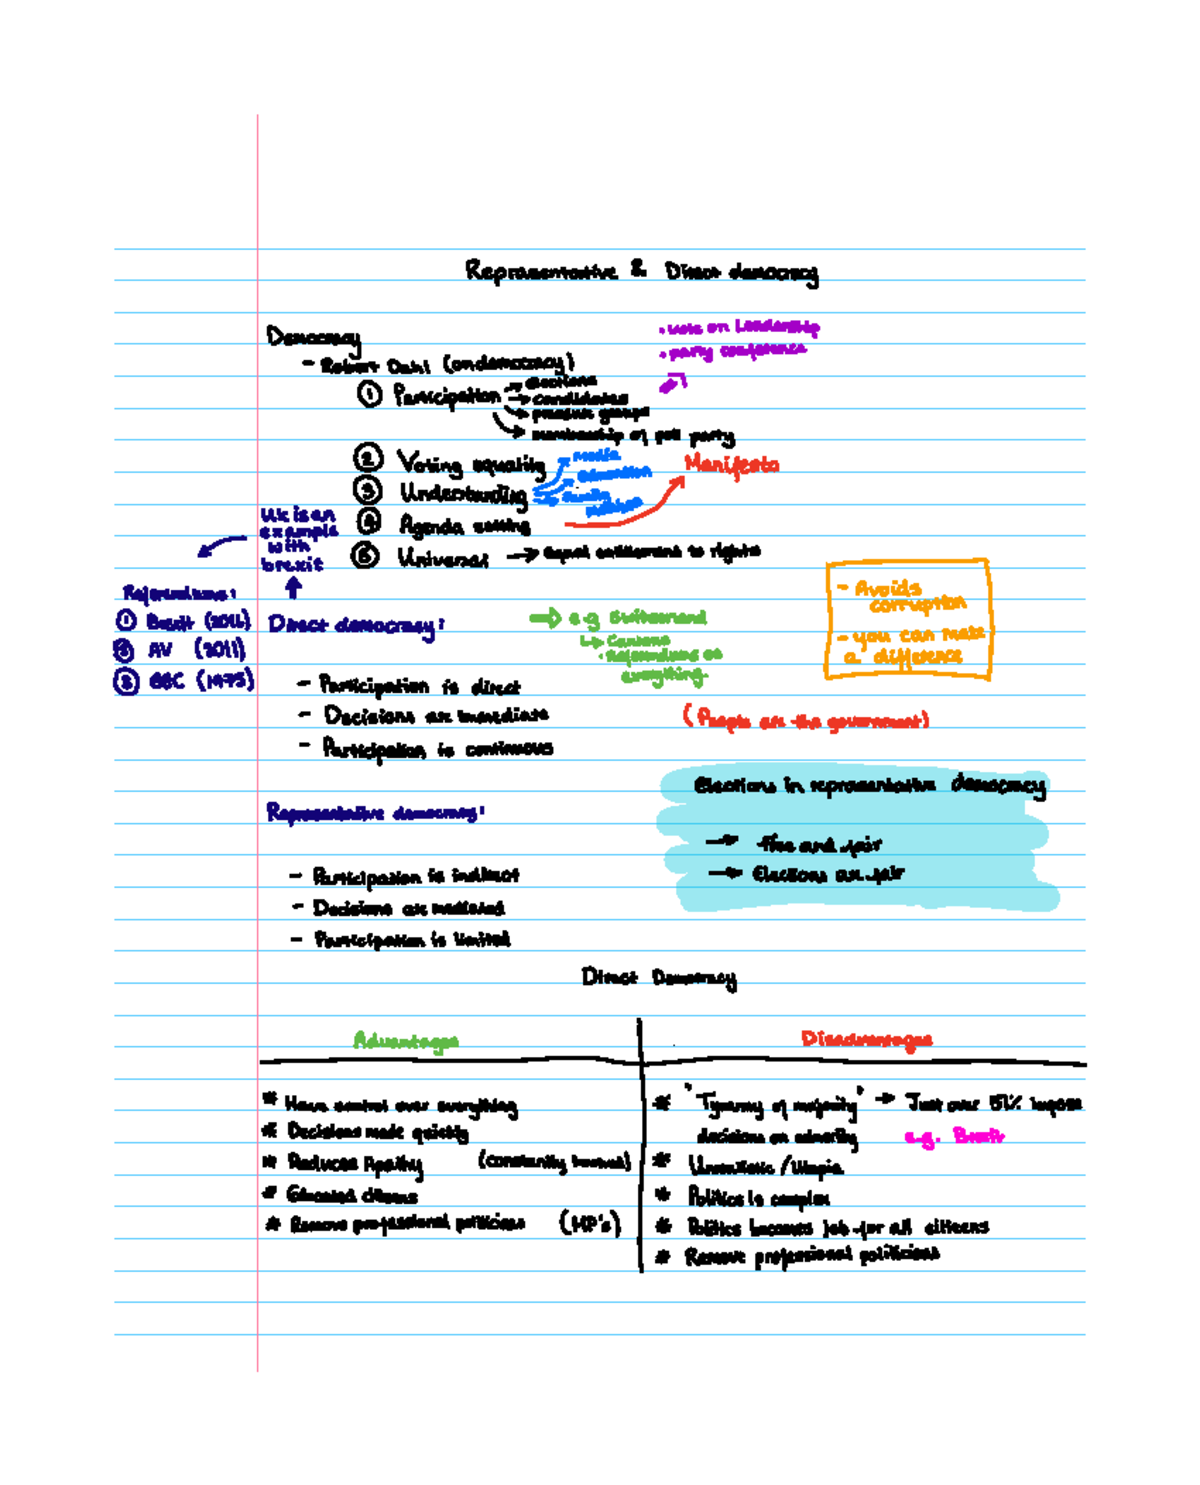 Representative & Direct democracy
Democracy
- Robert Dahl (on democracy)
① Participation → elections
→ candidates
→ pressure groups
→ membership of poll party
• vote on Leadership
• party conference
② Voting equality
③ Understanding
Media
Education
④ Agenda setting
Manifesto
⑤ Universal → equal entitlement to rights
UK is an
example
with
brexit
Referendums:
① Brexit (2016)
② AV (2011)
③ (1975)
Direct democracy:
⇒ e.g Switzerland
↳ Cantons
• Referendums on
everything
- Avoids
corruption
- you can make
a difference
- Participation is direct
- Decisions are immediate
- Participation is continuous
(People are the government)
Representative democracy:
Elections in representative democracy
→ free and fair
→ Elections are fair
- Participation is indirect
- Decisions are mediated
- Participation is limited
Direct Democracy
Advantages
* Have control over everything
* Decisions made quickly
* Reduces Apathy (constantly involved)
* Educated citizens
* Remove professional politicians (MP's)
Disadvantages
* "Tyranny of majority" → Just over 51% impose
decisions on minority e.g. Brexit
* Unrealistic / Utopia
* Politics is complex
* Politics becomes job for all citizens
* Remove professional politicians